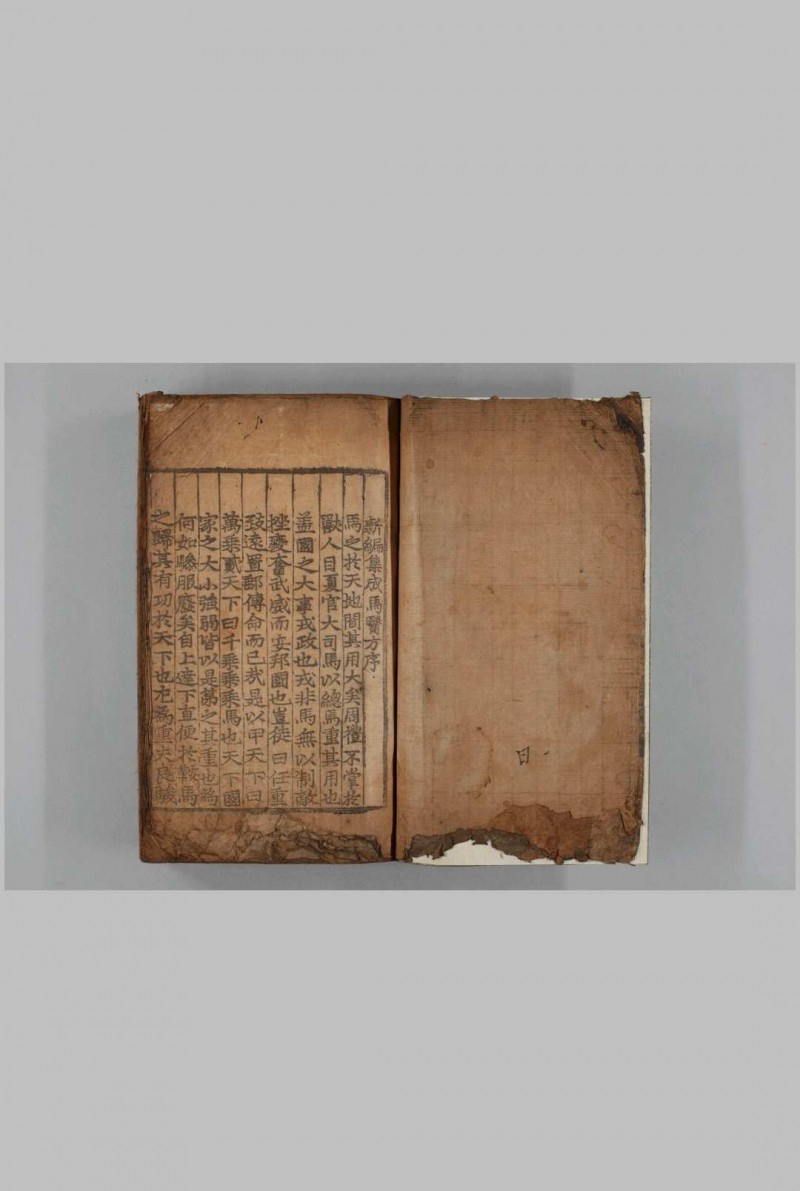 新編集成馬醫方序
馬之於天地間其用大矣周禮不掌於
獸人目夏官大司馬以總馬重其用也
盖國之大事戎政也戎非馬無以制敵
挫變奮武威而妥邦國也豈徒曰任重
致遠置郵傳命而已哉是以甲天下曰
萬乘貳天下曰千乘乘馬也天下國
家之大小強弱皆以是第之其重也為
何如驂服廢矣自上達下直便於鞍馬
之歸其有功於天下也尤為重夫良駿
日